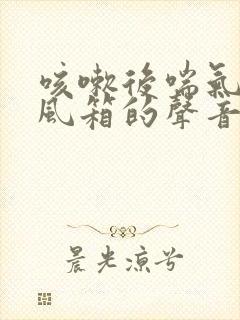 咳嗽後喘氣
風箱的聲音
晨光涼兮